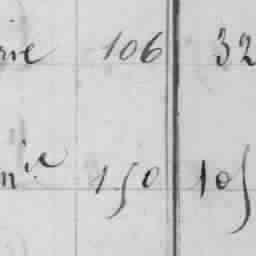 rie 106 32
n.ie 150 105